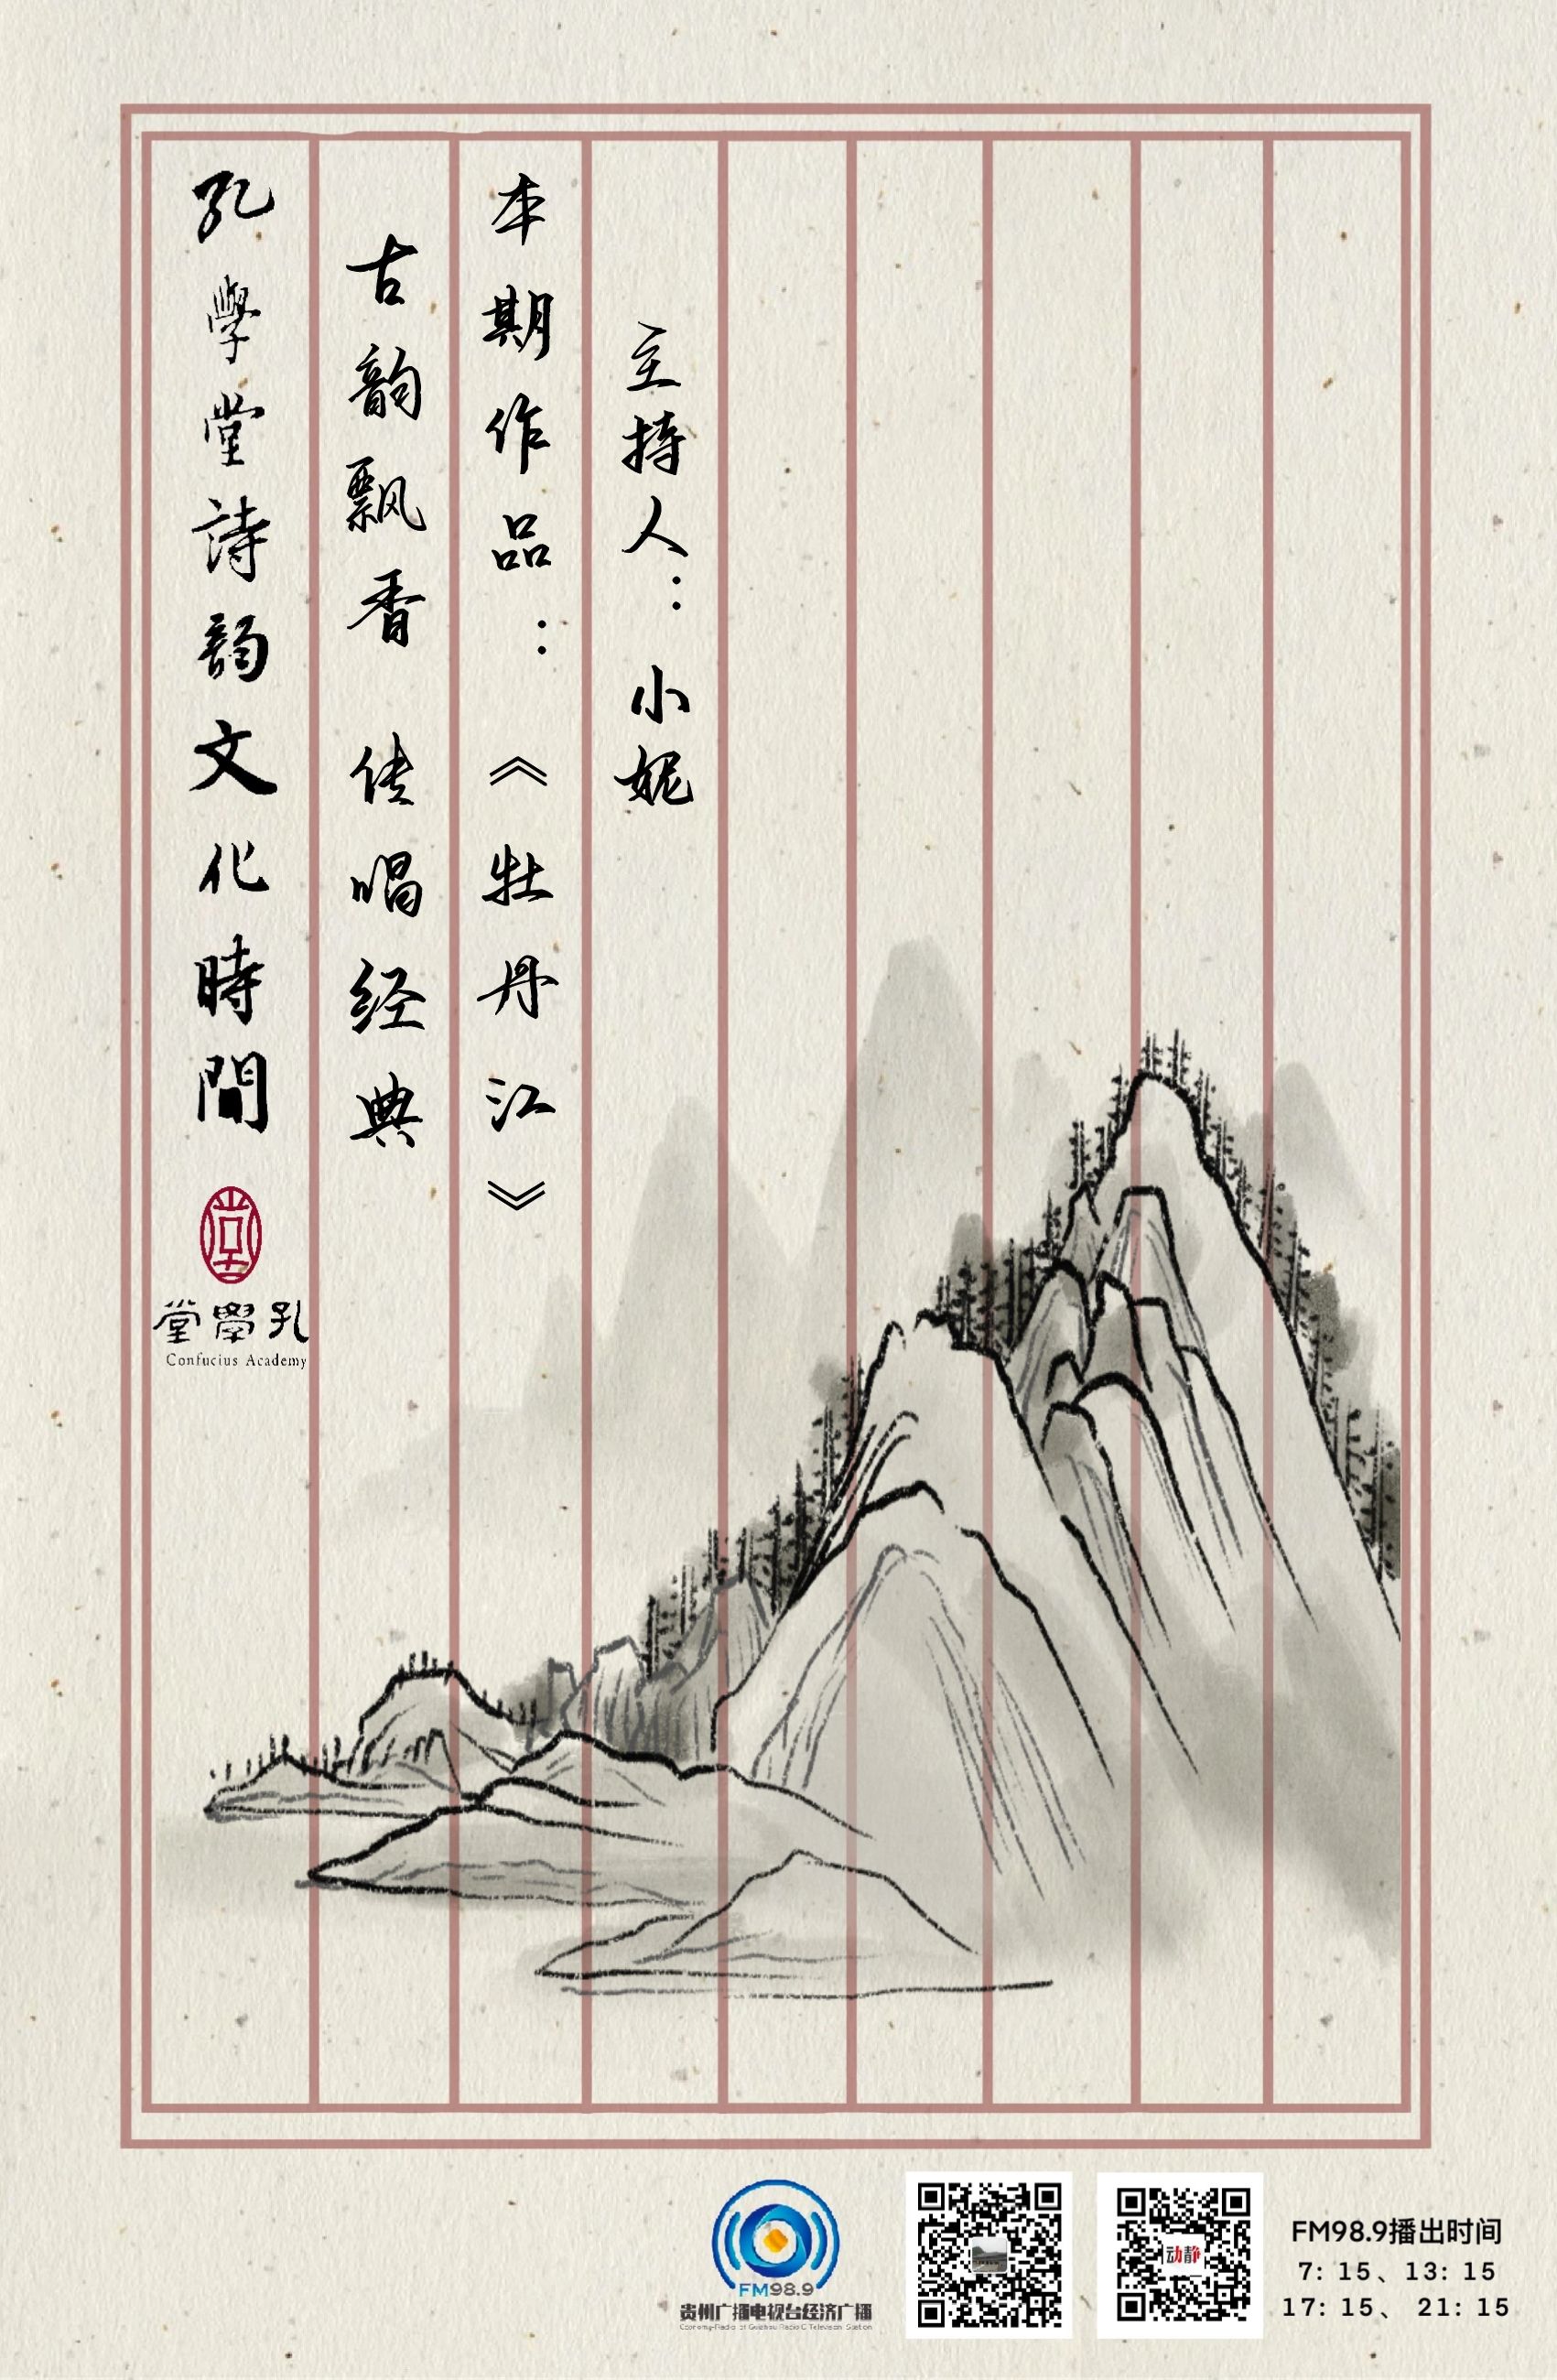 孔學堂詩韵文化時間
古韵飘香 传唱经典
本期作品：《牡丹江》
主持人：小妮
堂學孔
Confucius Academy
FM98.9
贵州广播电视台经济广播
Economy-Radio of Guizhou Radio & Television Station
动静
FM98.9播出时间
7: 15、13: 15
17: 15、 21: 15